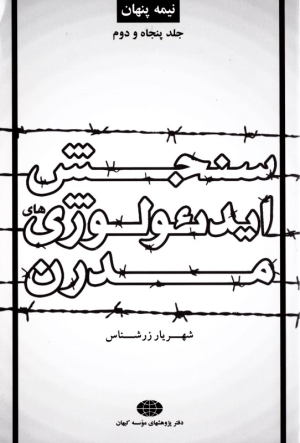 نیمه پنهان
جلد پنجاه و دوم
سنجش
ایدئولوژی‌های
مدرن
شهریار زرشناس
دفتر پژوهشهای مؤسسه کیهان